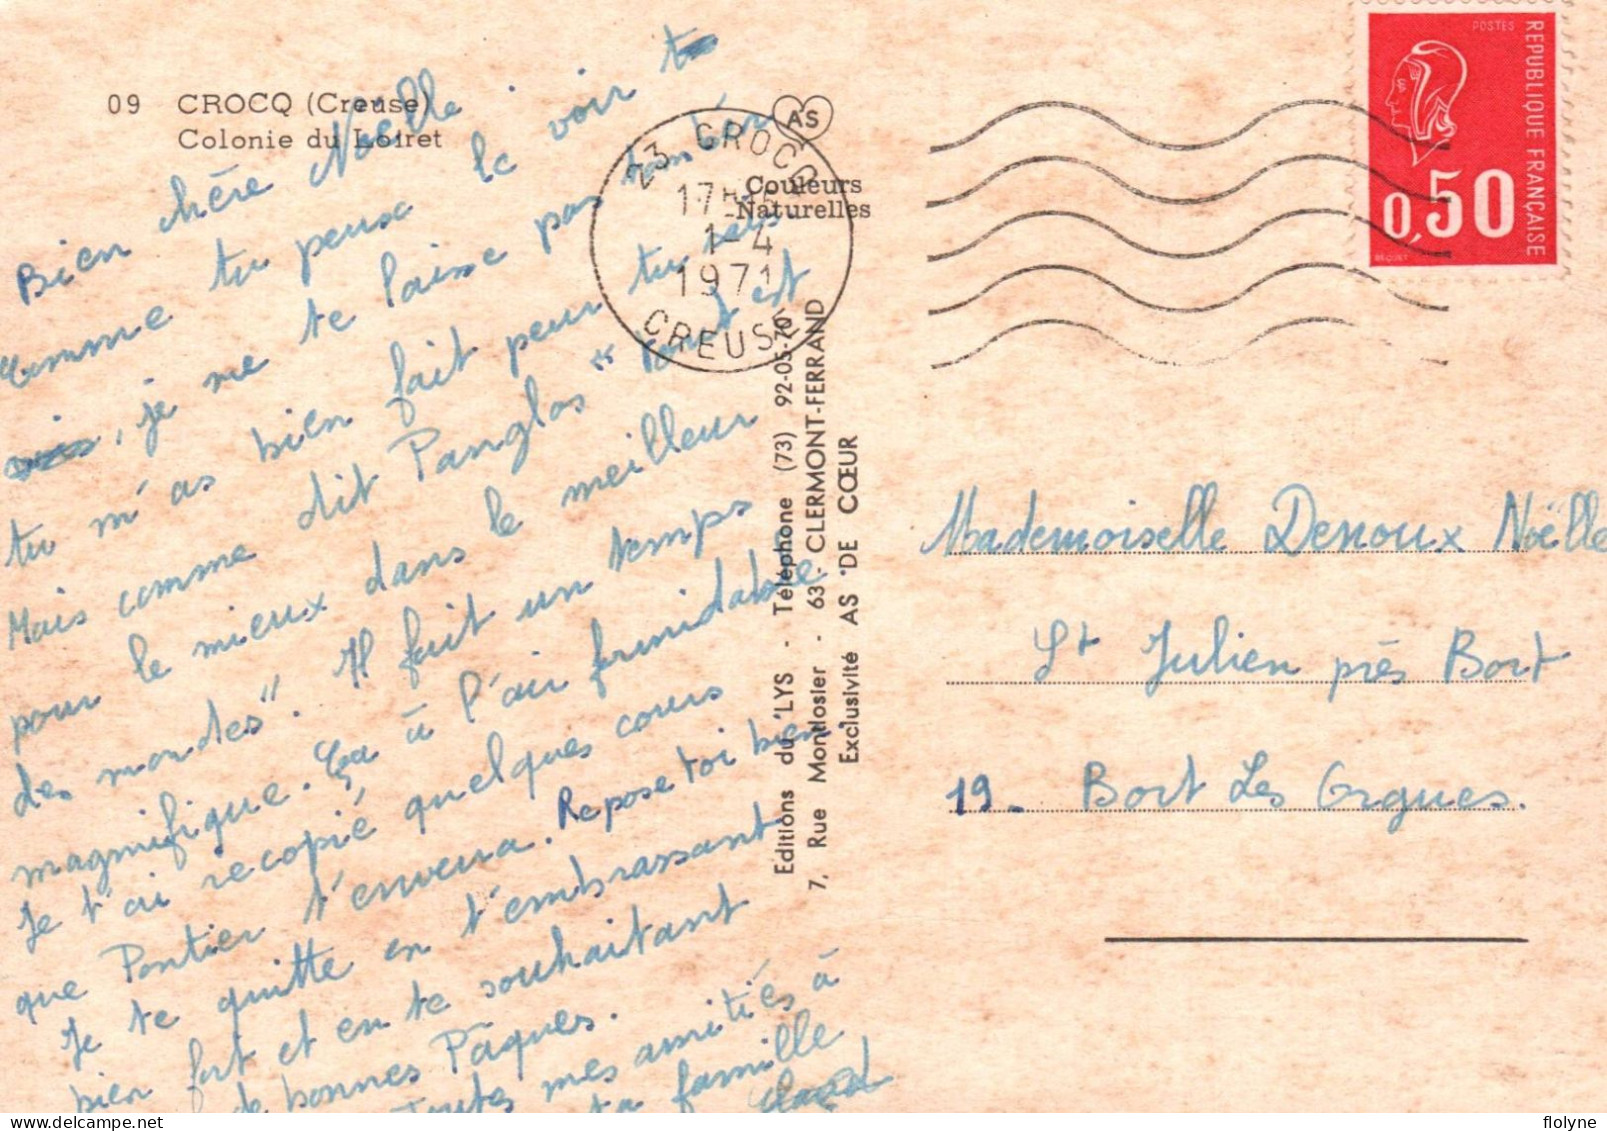 09 CROCQ (Creuse)
Colonie du Loiret
AS
Couleurs
Naturelles
Bien chère Noëlle
Comme tu peux le voir
, je ne te laisse pas tomber
tu m'as bien fait peur tu sais
Mais comme dit Panglos "tout est
pour le mieux dans le meilleur
des mondes". Il fait un temps
magnifique. Ça à l'air formidable
Je t'ai recopié quelques cours
que Pontier t'enverra. Repose toi bien
Je te quitte en t'embrassant
bien fort et en te souhaitant
de bonnes Pâques.
Toutes mes amitiés à
ta famille
23 CROCQ
17H
1-4
1971
CREUSE
Editions du LYS - Téléphone (73) 92-05-70
7, Rue Montlosier - 63 - CLERMONT-FERRAND
Exclusivité AS DE CŒUR
POSTES
REPUBLIQUE FRANÇAISE
0,50
BEQUET
Mademoiselle Denoux Noëlle
St Julien près Bort
19 - Bort Les Orgues.
flolyne